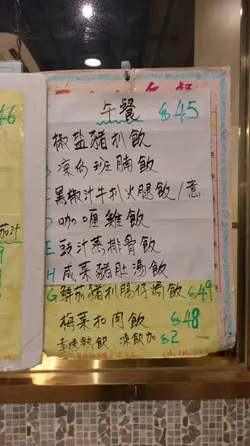 午餐 $45
椒盐豬扒飯
凉瓜班腩飯
黑椒汁牛扒火腿飯/意
D 咖喱雞飯
E 豉汁蒸排骨飯
H 咸菜豬肚湯飯
G 鮮茄豬扒腸仔焗飯 $49
梅菜扣肉飯 $48
幸送熱飲 凍飲加 $2
46
茄汁